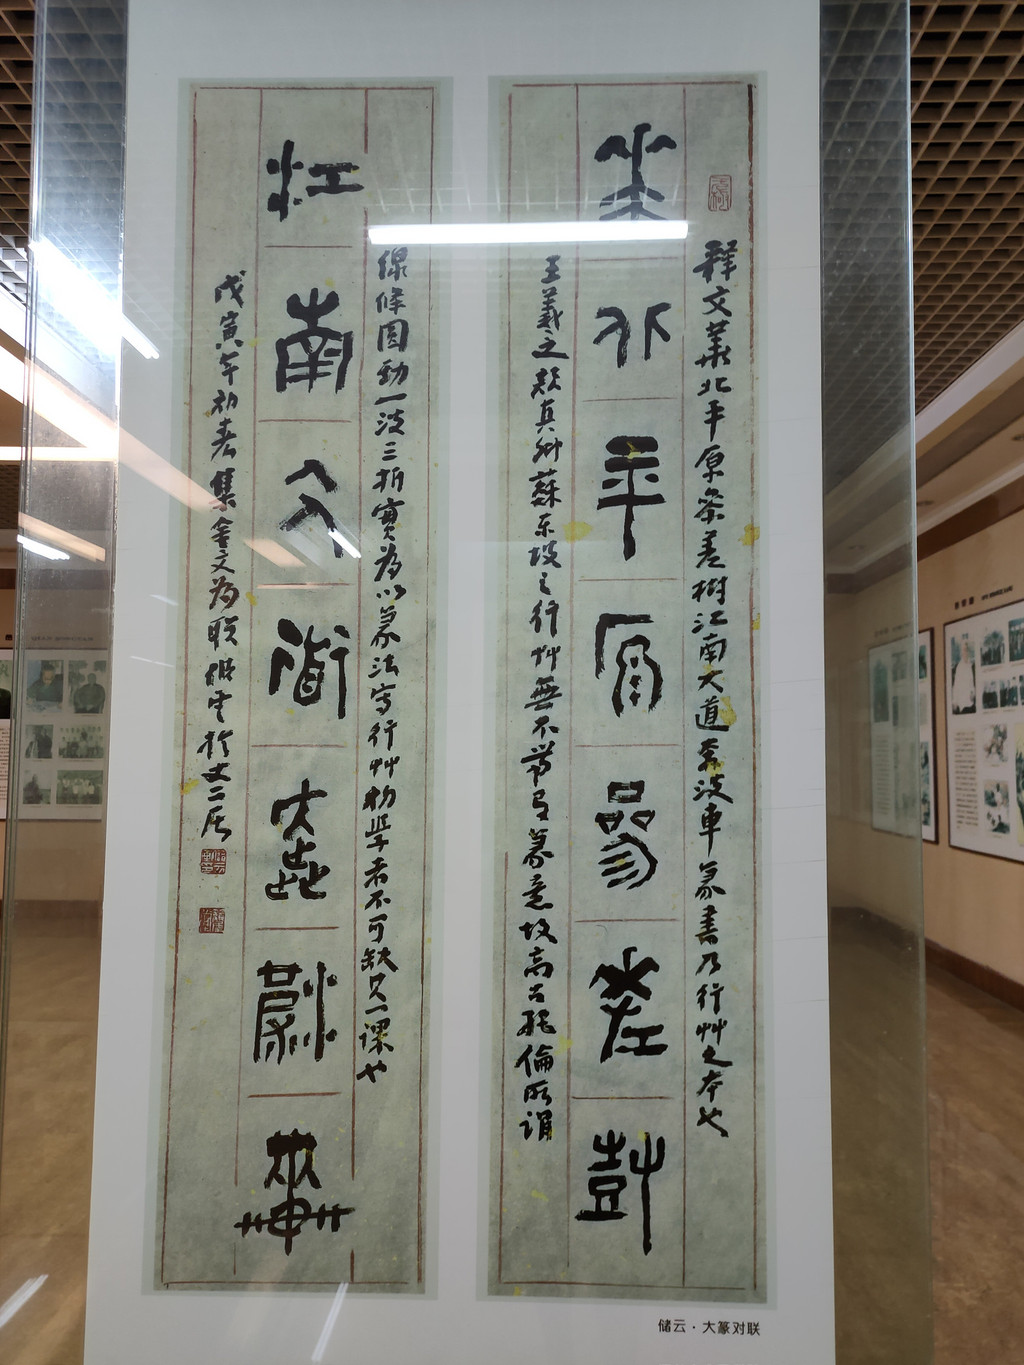 釋文華北平原參差樹江南大道奔波車篆書乃行艸之本也
華北平原參差樹
王羲之顏真卿蘇东坡之行艸無不帶有篆意故高古絕倫所謂
線條圓勁一波三折實為以篆法寫行艸初學者不可缺只一課也
江南大道奔波車
戊寅年初春集金文為联儲雲於文二居
储云·大篆对联